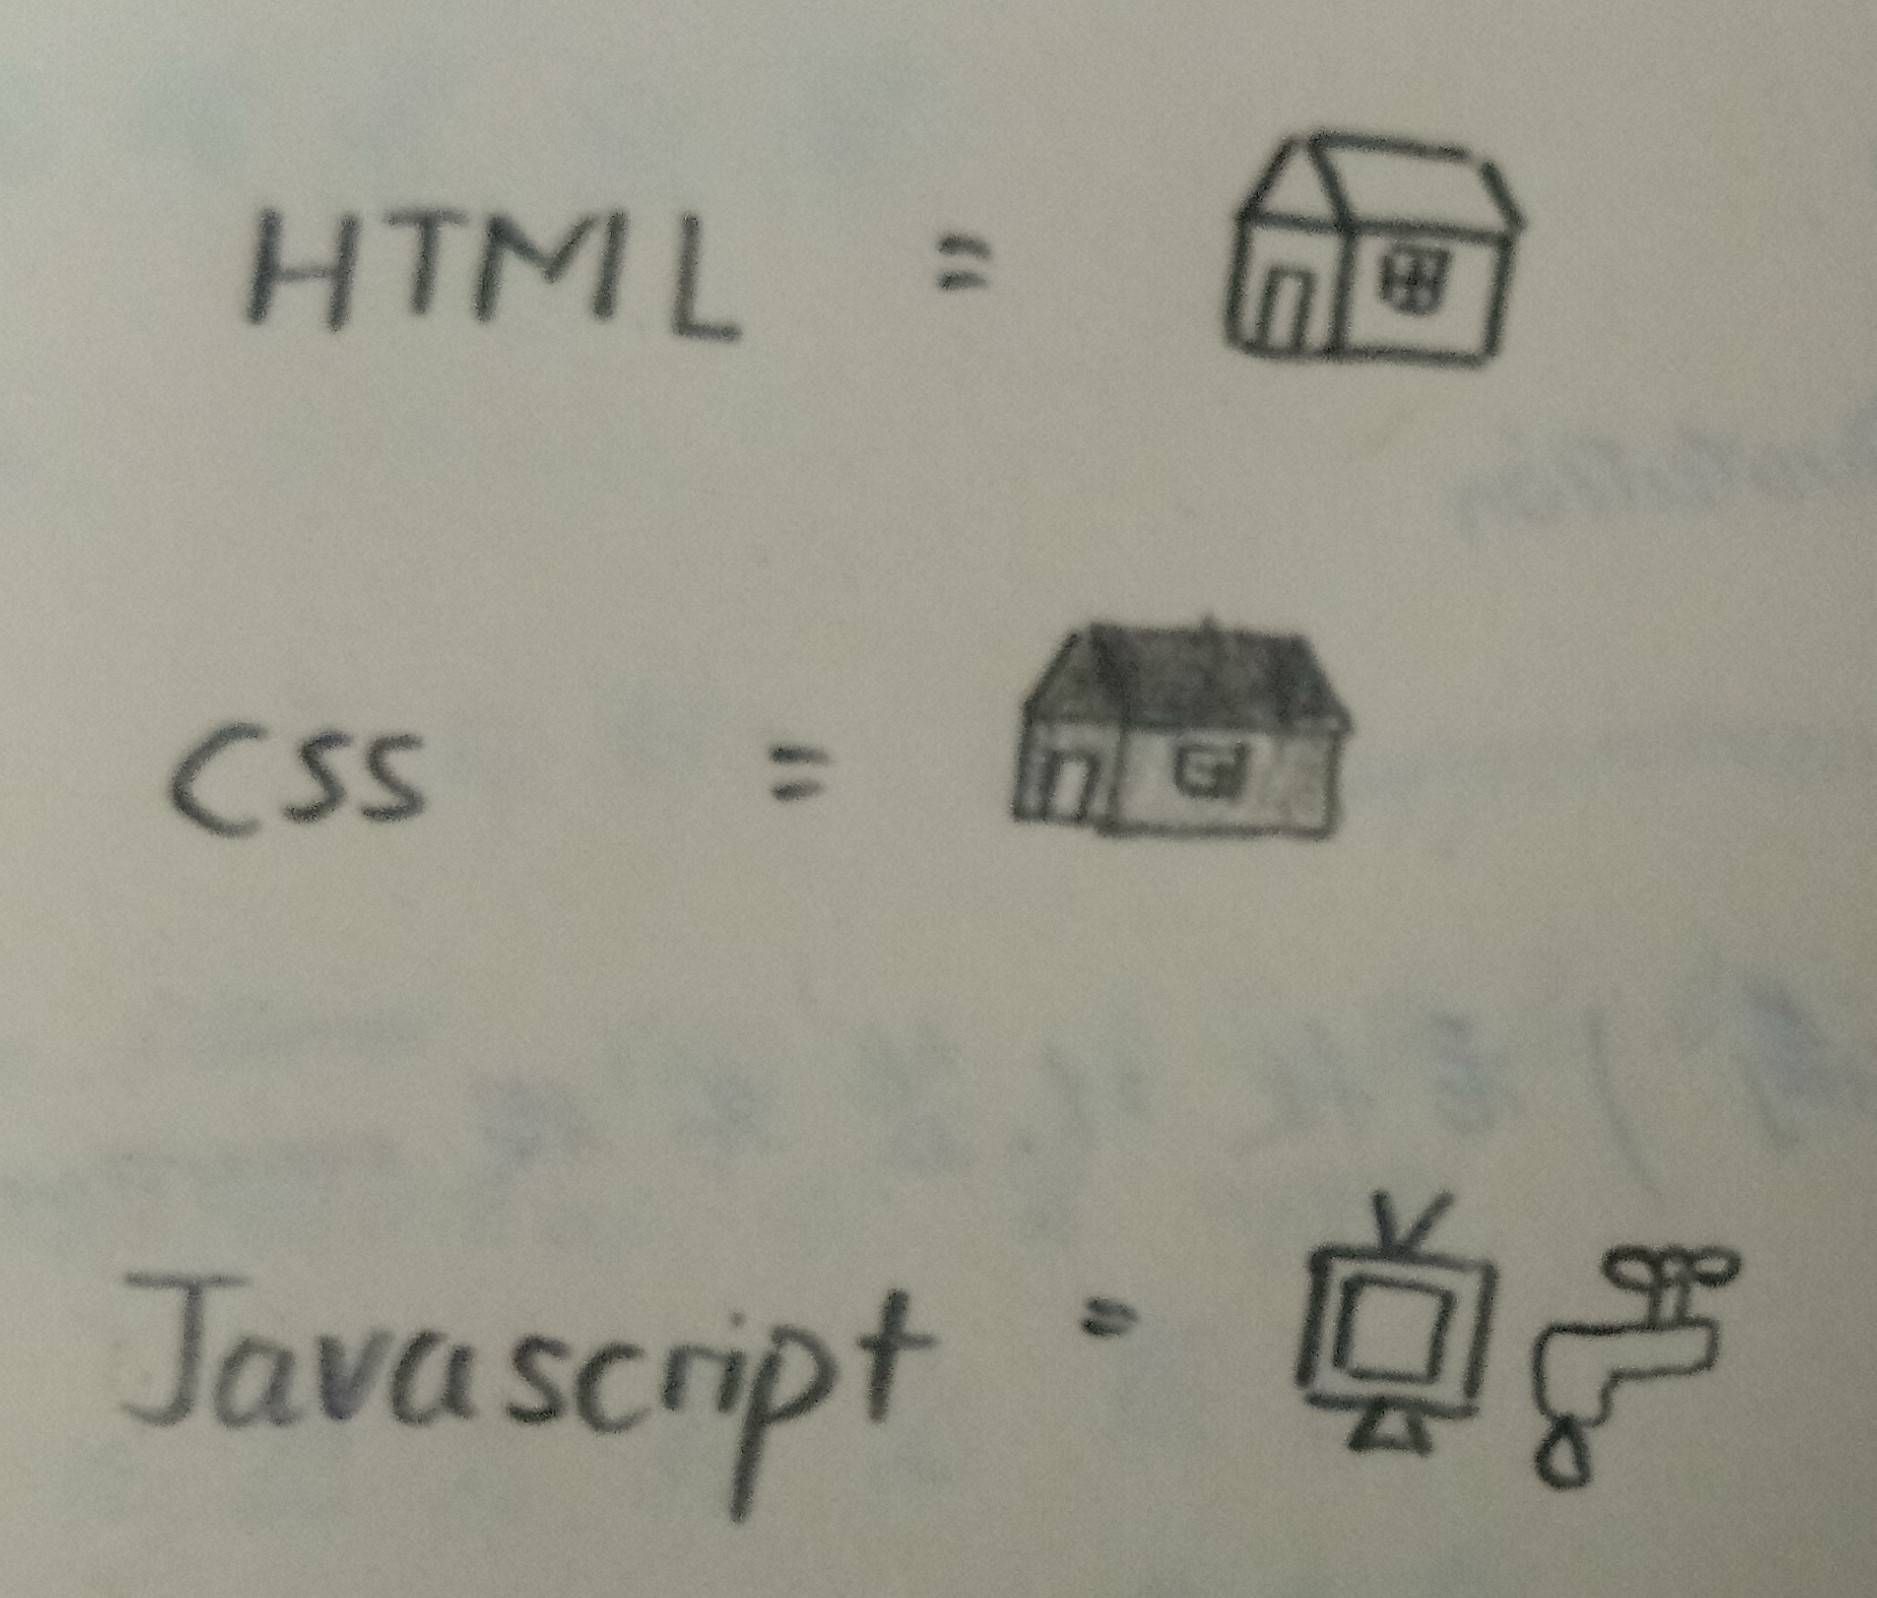 HTML =
CSS =
Javascript =